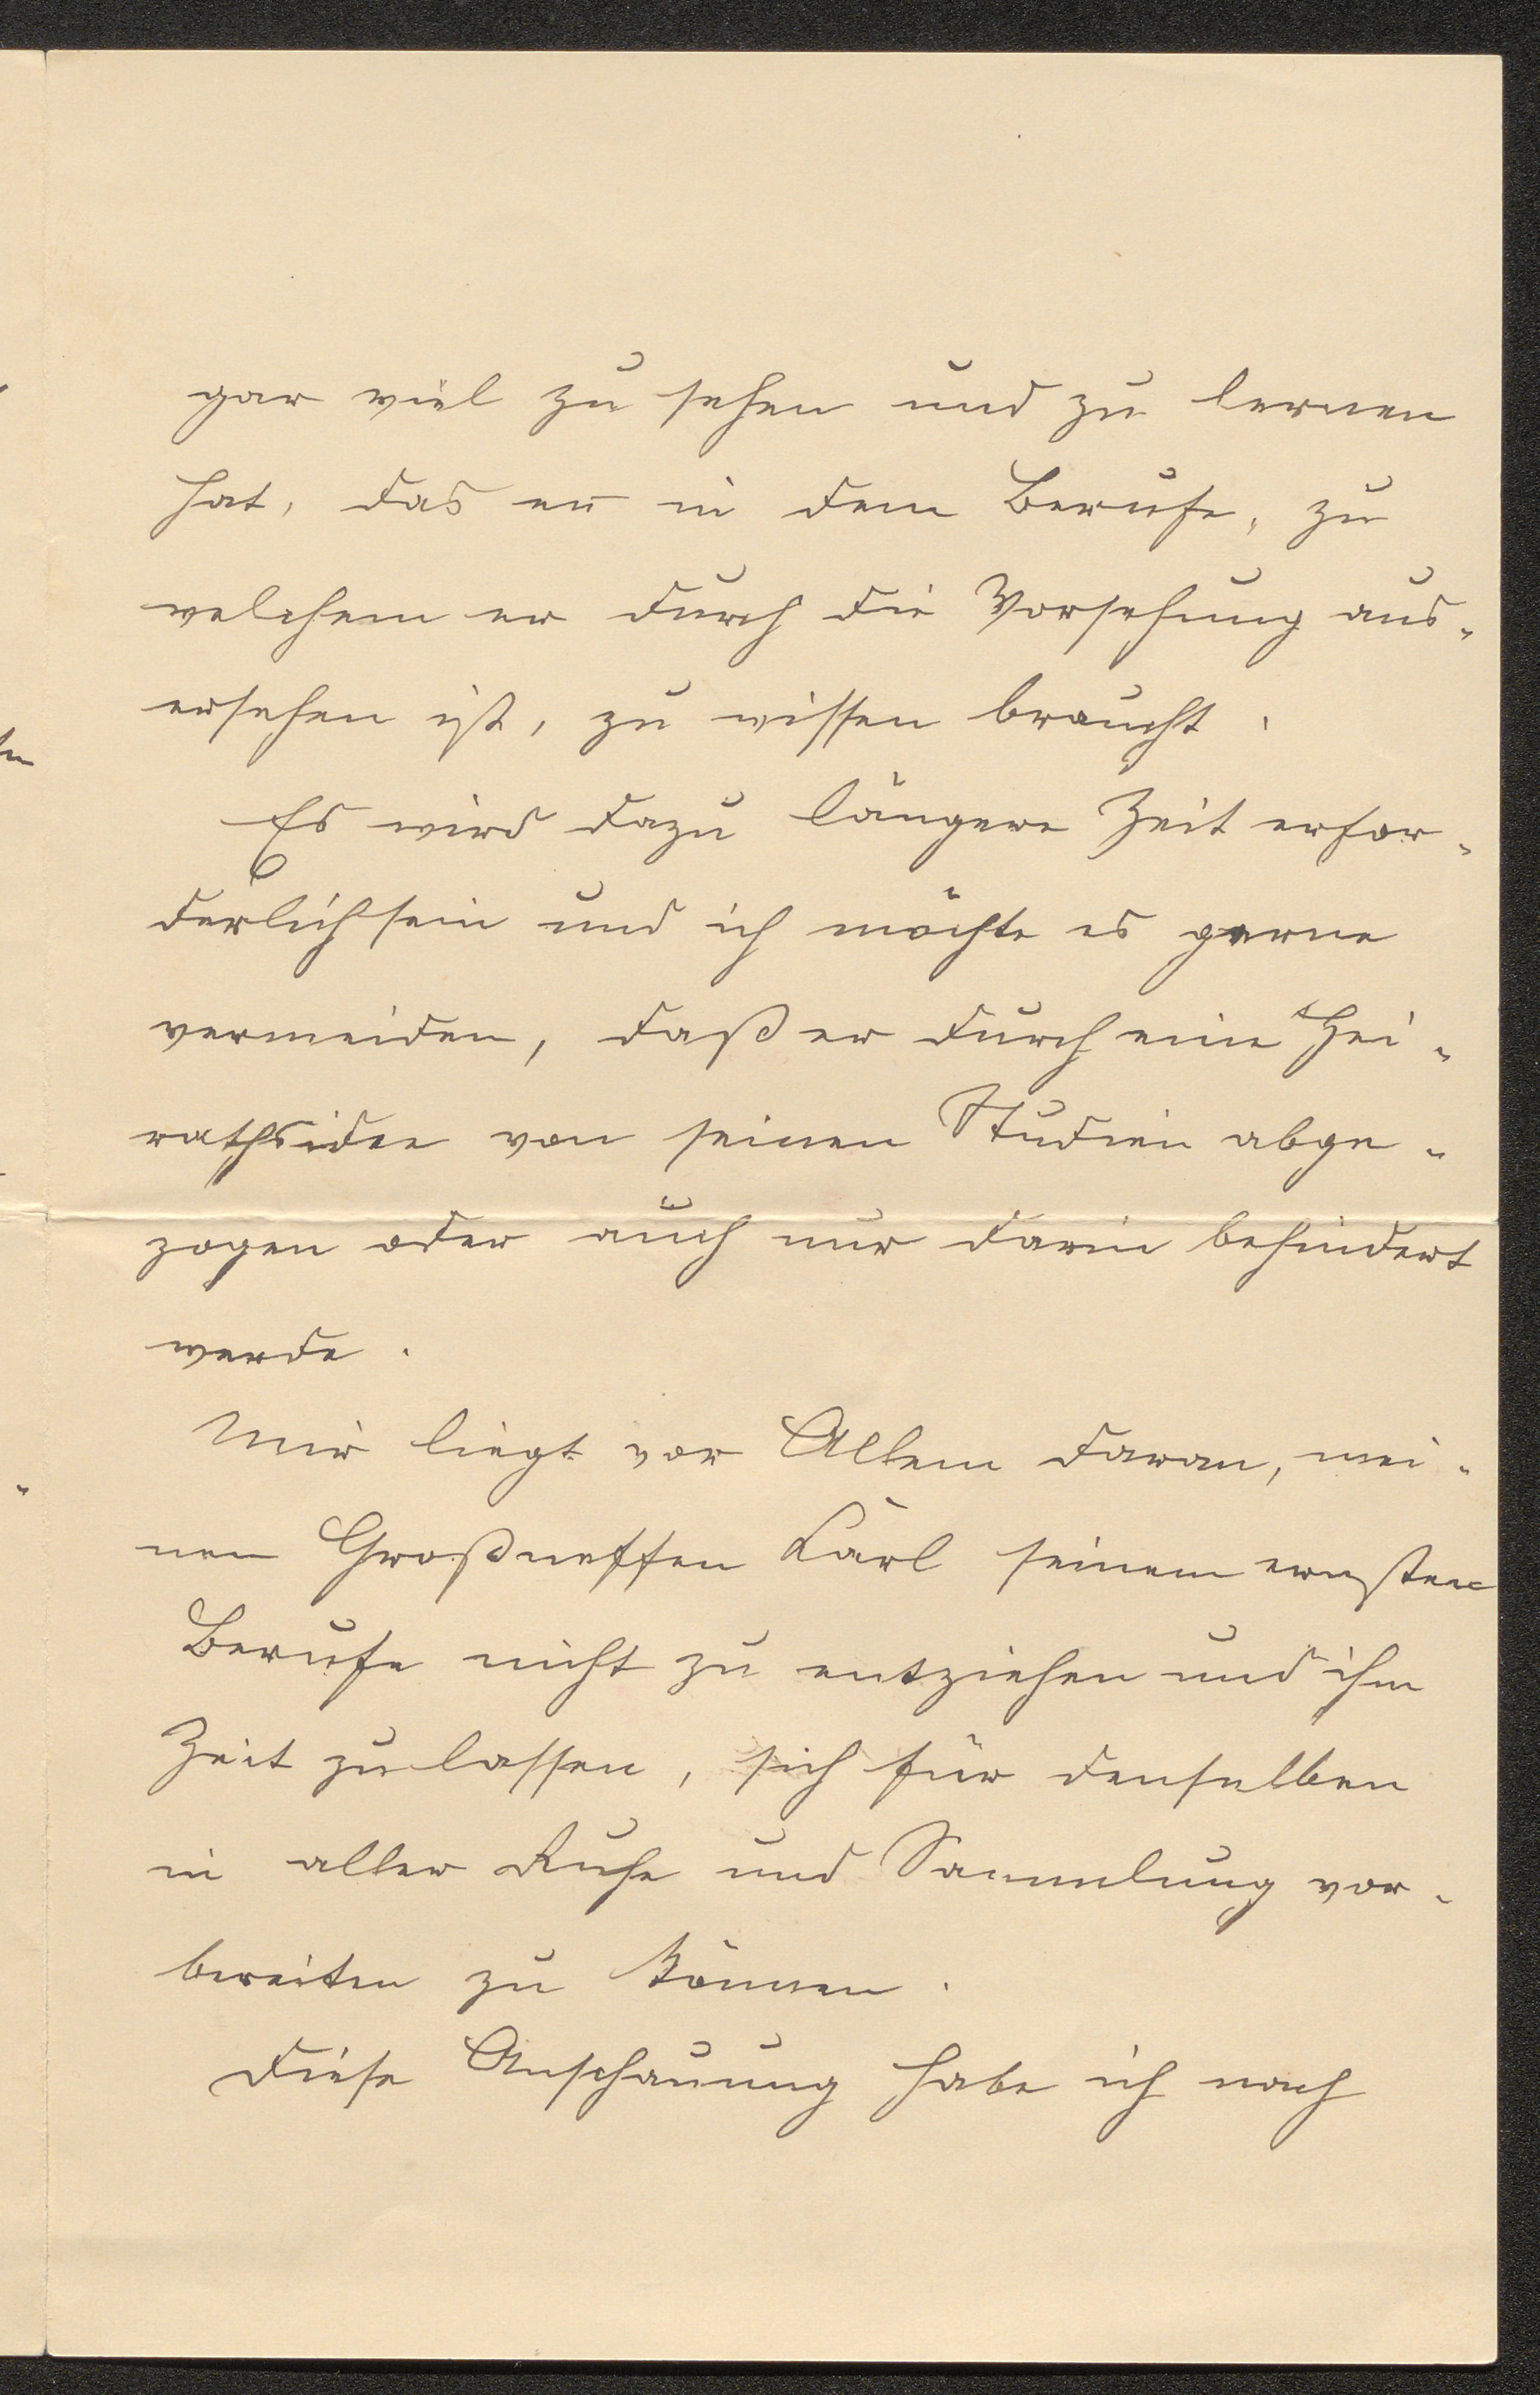 gar viel zu sehen und zu lernen
hat, das er in dem Berufe, zu
welchem er durch die Vorsehung aus-
ersehen ist, zu wissen braucht.
Es wird dazu längere Zeit erfor-
derlich sein und ich möchte es gerne
vermeiden, daß er durch eine Hei-
rathsidee von seinen Studien abge-
zogen oder auch nur darin behindert
werde.
Mir liegt vor Allem daran, mei-
nen Großneffen Karl seinem ernsten
Berufe nicht zu entziehen und ihm
Zeit zu lassen, sich für denselben
in aller Ruhe und Sammlung vor-
bereiten zu können.
Diese Anschauung habe ich nach